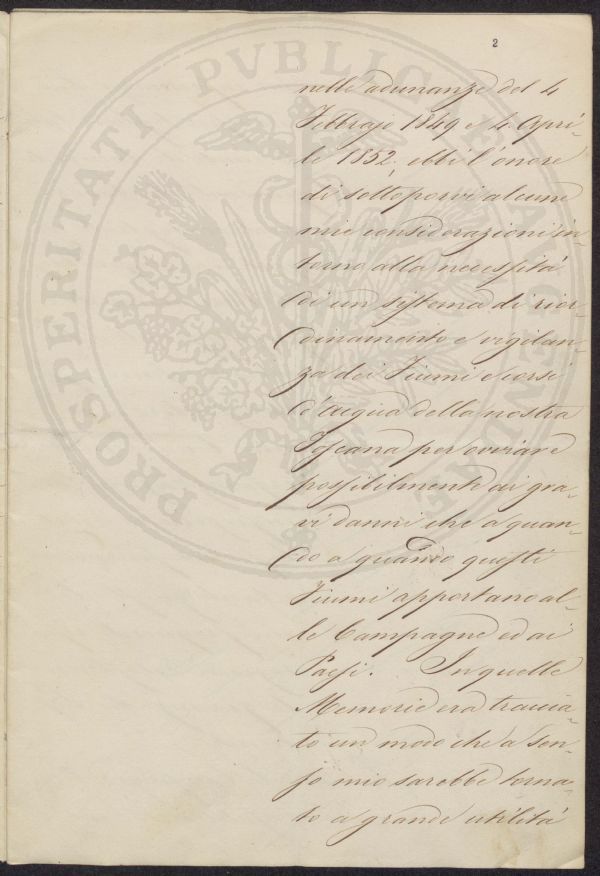 2
nelle adunanze del 4
Febbrajo 1849 e 4. Apri-
le 1852, ebbi l'onore
di sottoporvi alcune
mie considerazioni in-
torno alla necessità
di un sistema di rior-
dinamento e vigilan-
za dei Fiumi e corsi
d'acqua della nostra
Toscana per ovviare
possibilmente ai gra-
vi danni che a quan-
do a quando questi
Fiumi apportano al-
le Campagne ed ai
Paesi. In quelle
Memorie era traccia-
to un modo che a sen-
so mio sarebbe torna-
to a grande utilità
PROSPERITATI PVBLICAE AVGENDAE